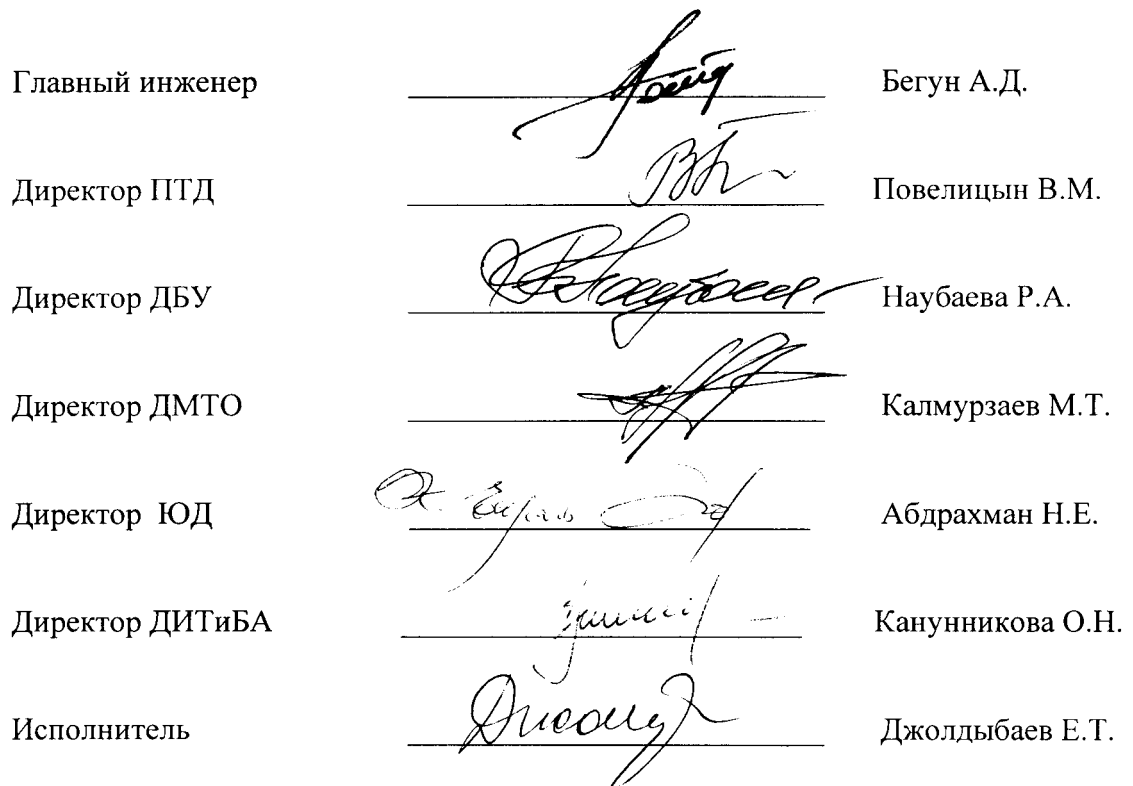 Главный инженер Бегун А.Д.
Директор ПТД Повелицын В.М.
Директор ДБУ Наубаева Р.А.
Директор ДМТО Калмурзаев М.Т.
Директор ЮД Абдрахман Н.Е.
Директор ДИТиБА Канунникова О.Н.
Исполнитель Джолдыбаев Е.Т.